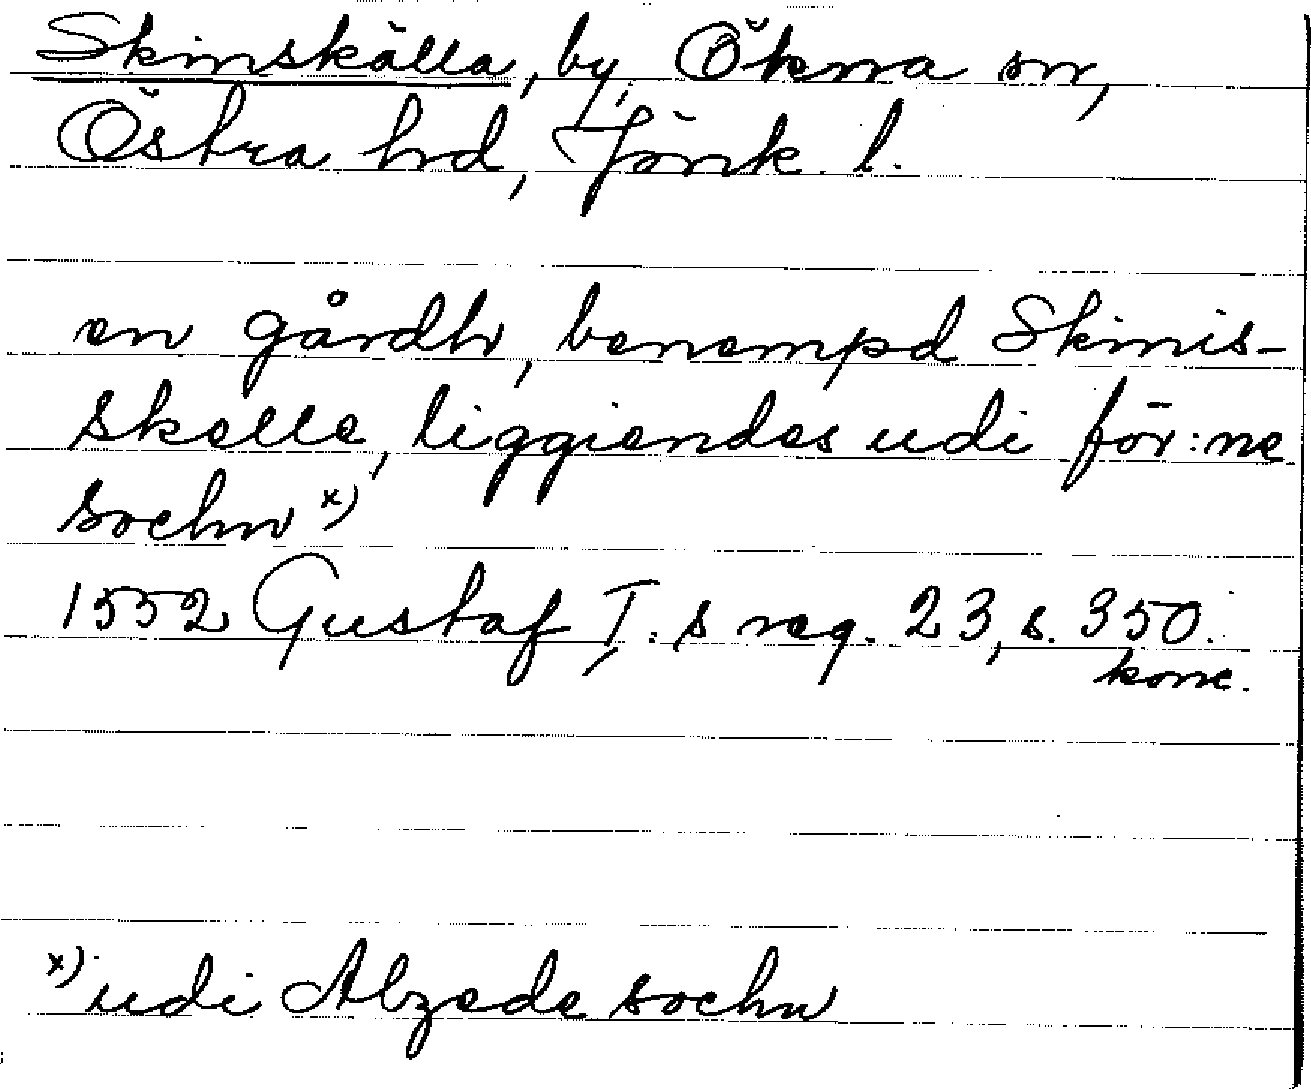 Skinskälla, by, Ökna sn,
Östra hrd, Jönk. l.
en gårdh, benempd Skinis-
skelle, liggiendes udi för:ne
sochn x)
1552 Gustaf I:s reg. 23, s. 350.
konc.
x) udi Alzede sochn